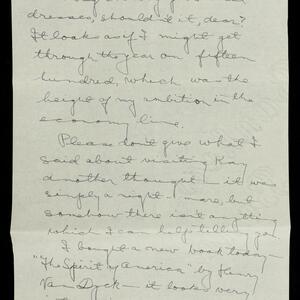 dresses, should it, dear?
It looks as if I might get
through the year on fifteen
hundred, which was the
height of my ambition in the
economy line.
Please don't give what I
said about meeting Kay
another thought - it was
simply a night - mare, but
somehow there isn't anything
which I can help telling you
I bought a new book today -
"The Spirit of America" by Henry
Van Dyck - it looks very